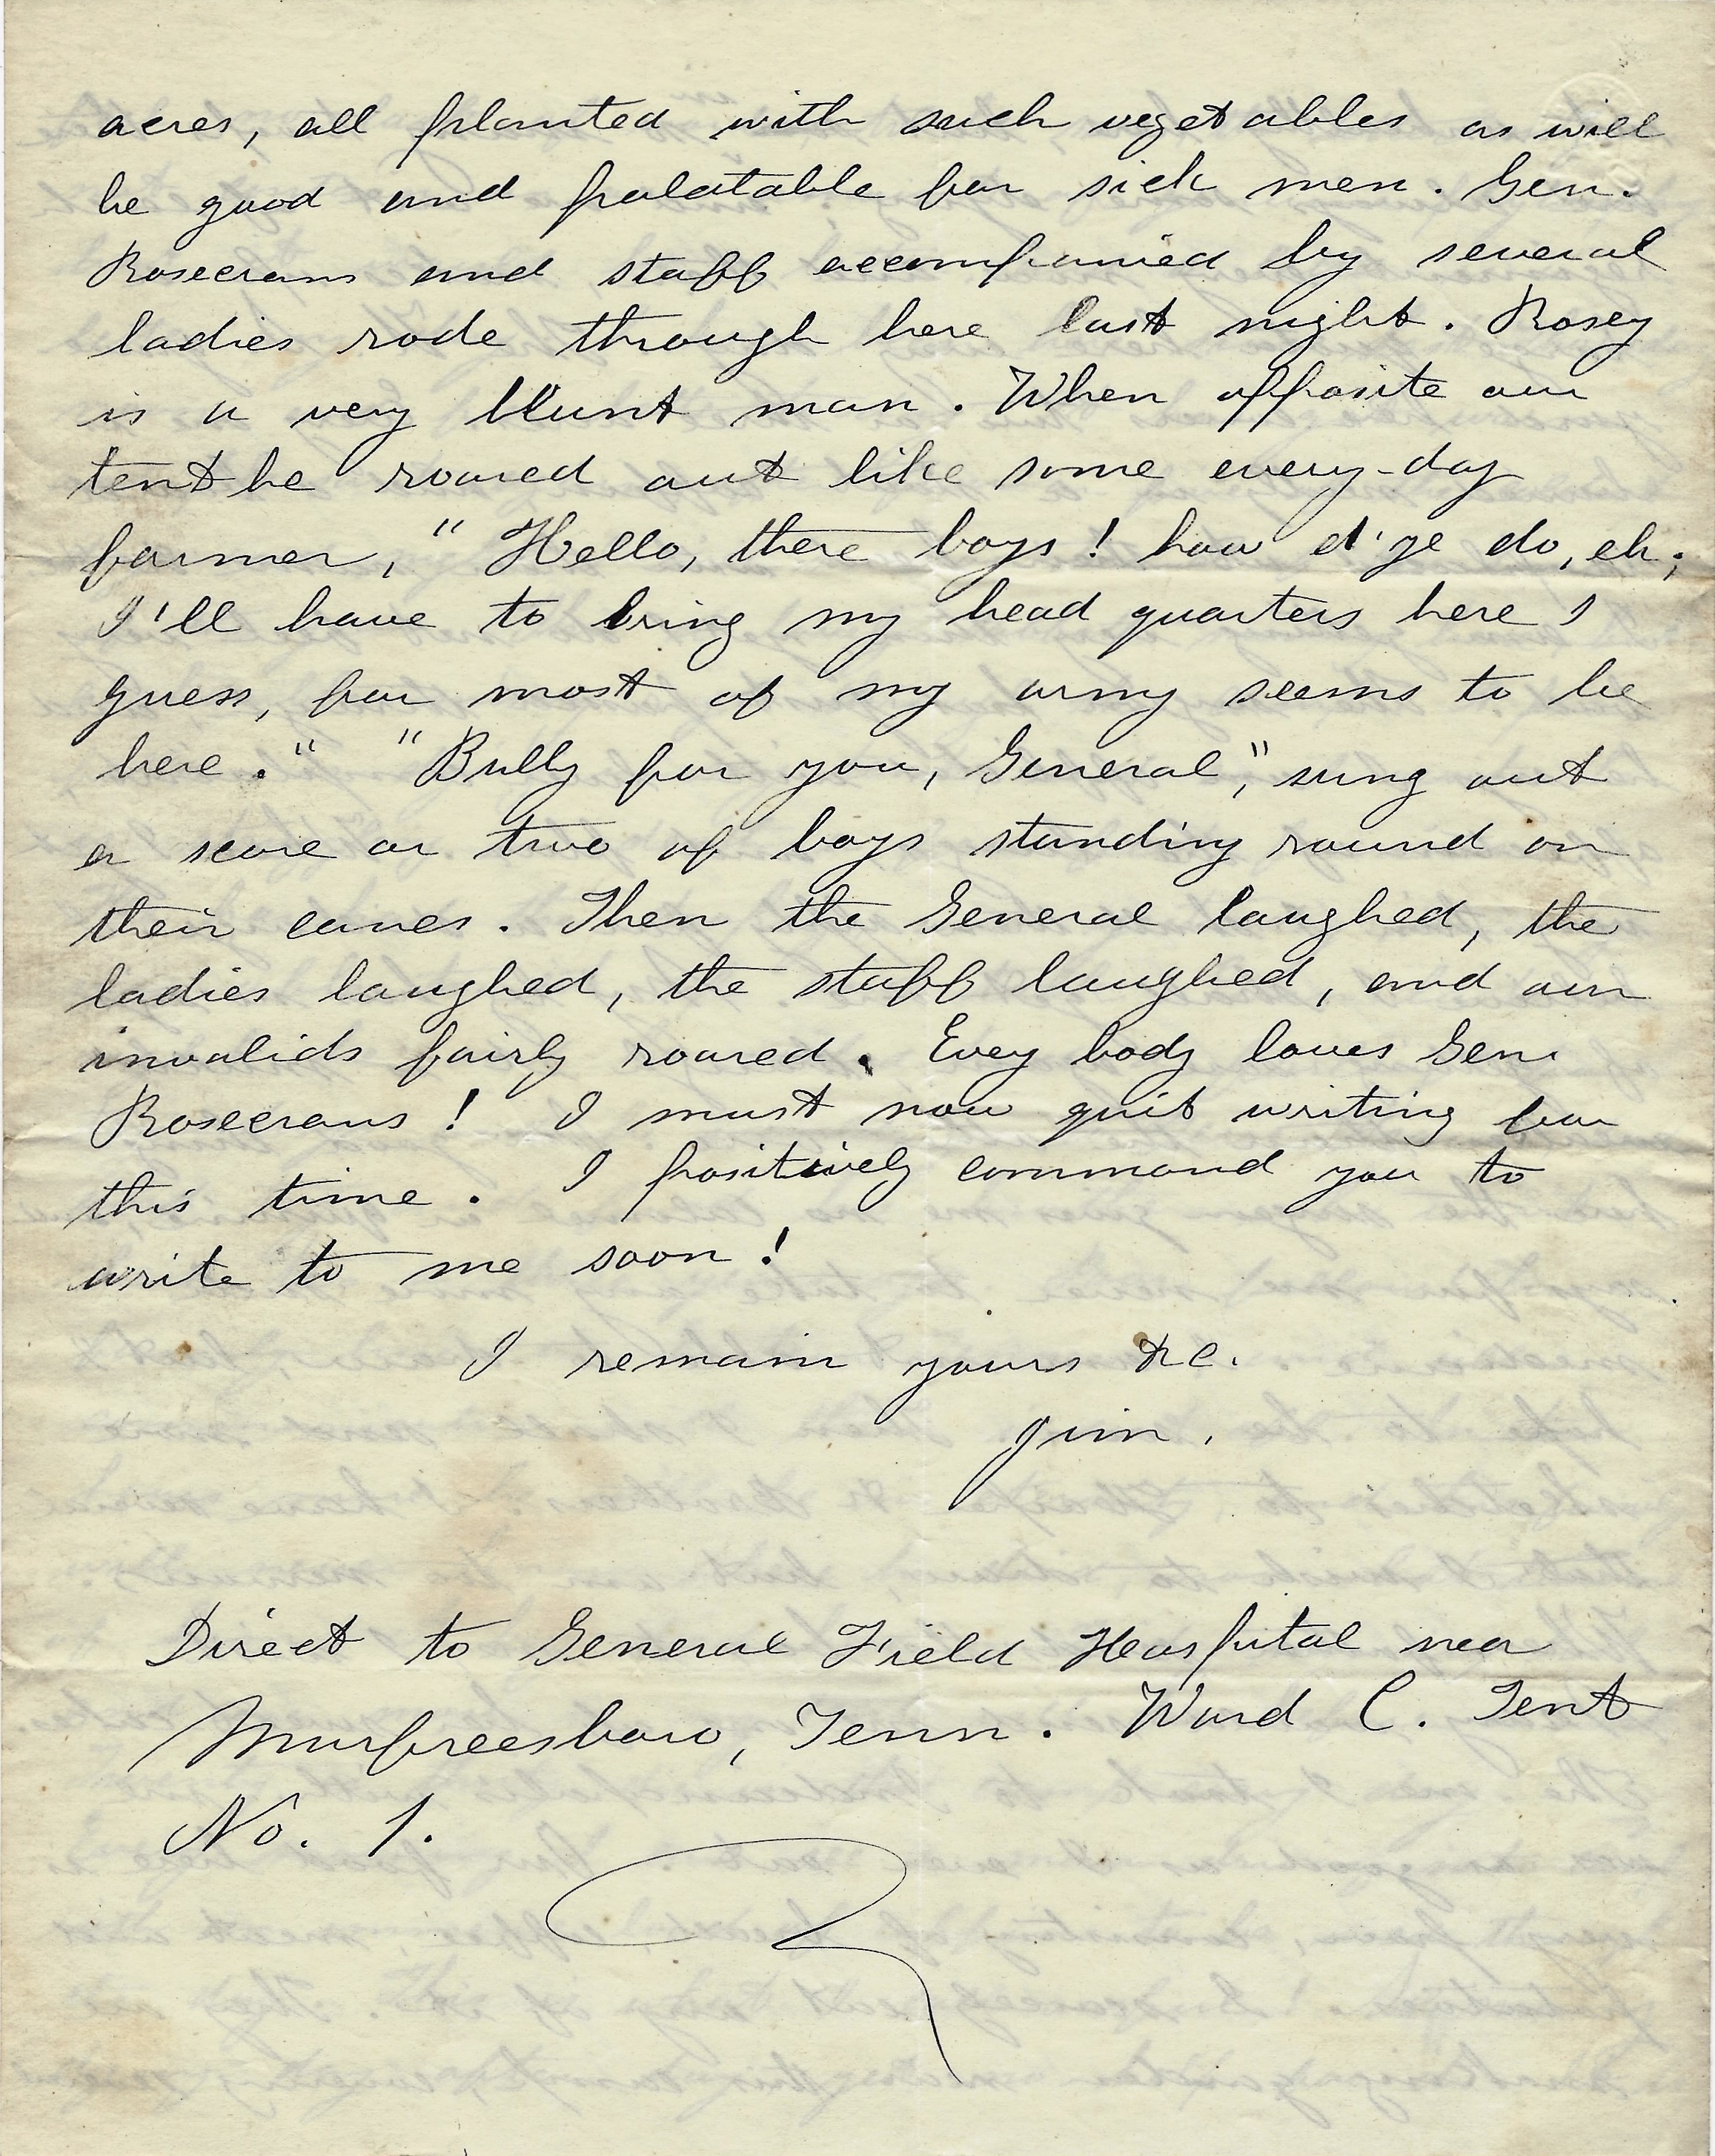 acres, all planted with such vegetables as will
be good and palatable for sick men. Gen.
Rosecrans and staff accompanied by several
ladies rode through here last night. Rosey
is a very blunt man. When opposite our
tent he roared out like some every-day
farmer, "Hello, there boys! how d'ye do, eh;
I'll have to bring my head quarters here I
guess, for most of my army seems to be
here." "Bully for you, General," sung out
a score or two of boys standing round on
their canes. Then the General laughed, the
ladies laughed, the staff laughed, and our
invalids fairly roared. Evey body loves Gen.
Rosecrans! I must now quit writing for
this time. I positively command you to
write to me soon!
I remain yours &c.
Jim.
Direct to General Field Hospital near
Murfreesboro, Tenn. Ward C. Tent
No. 1.